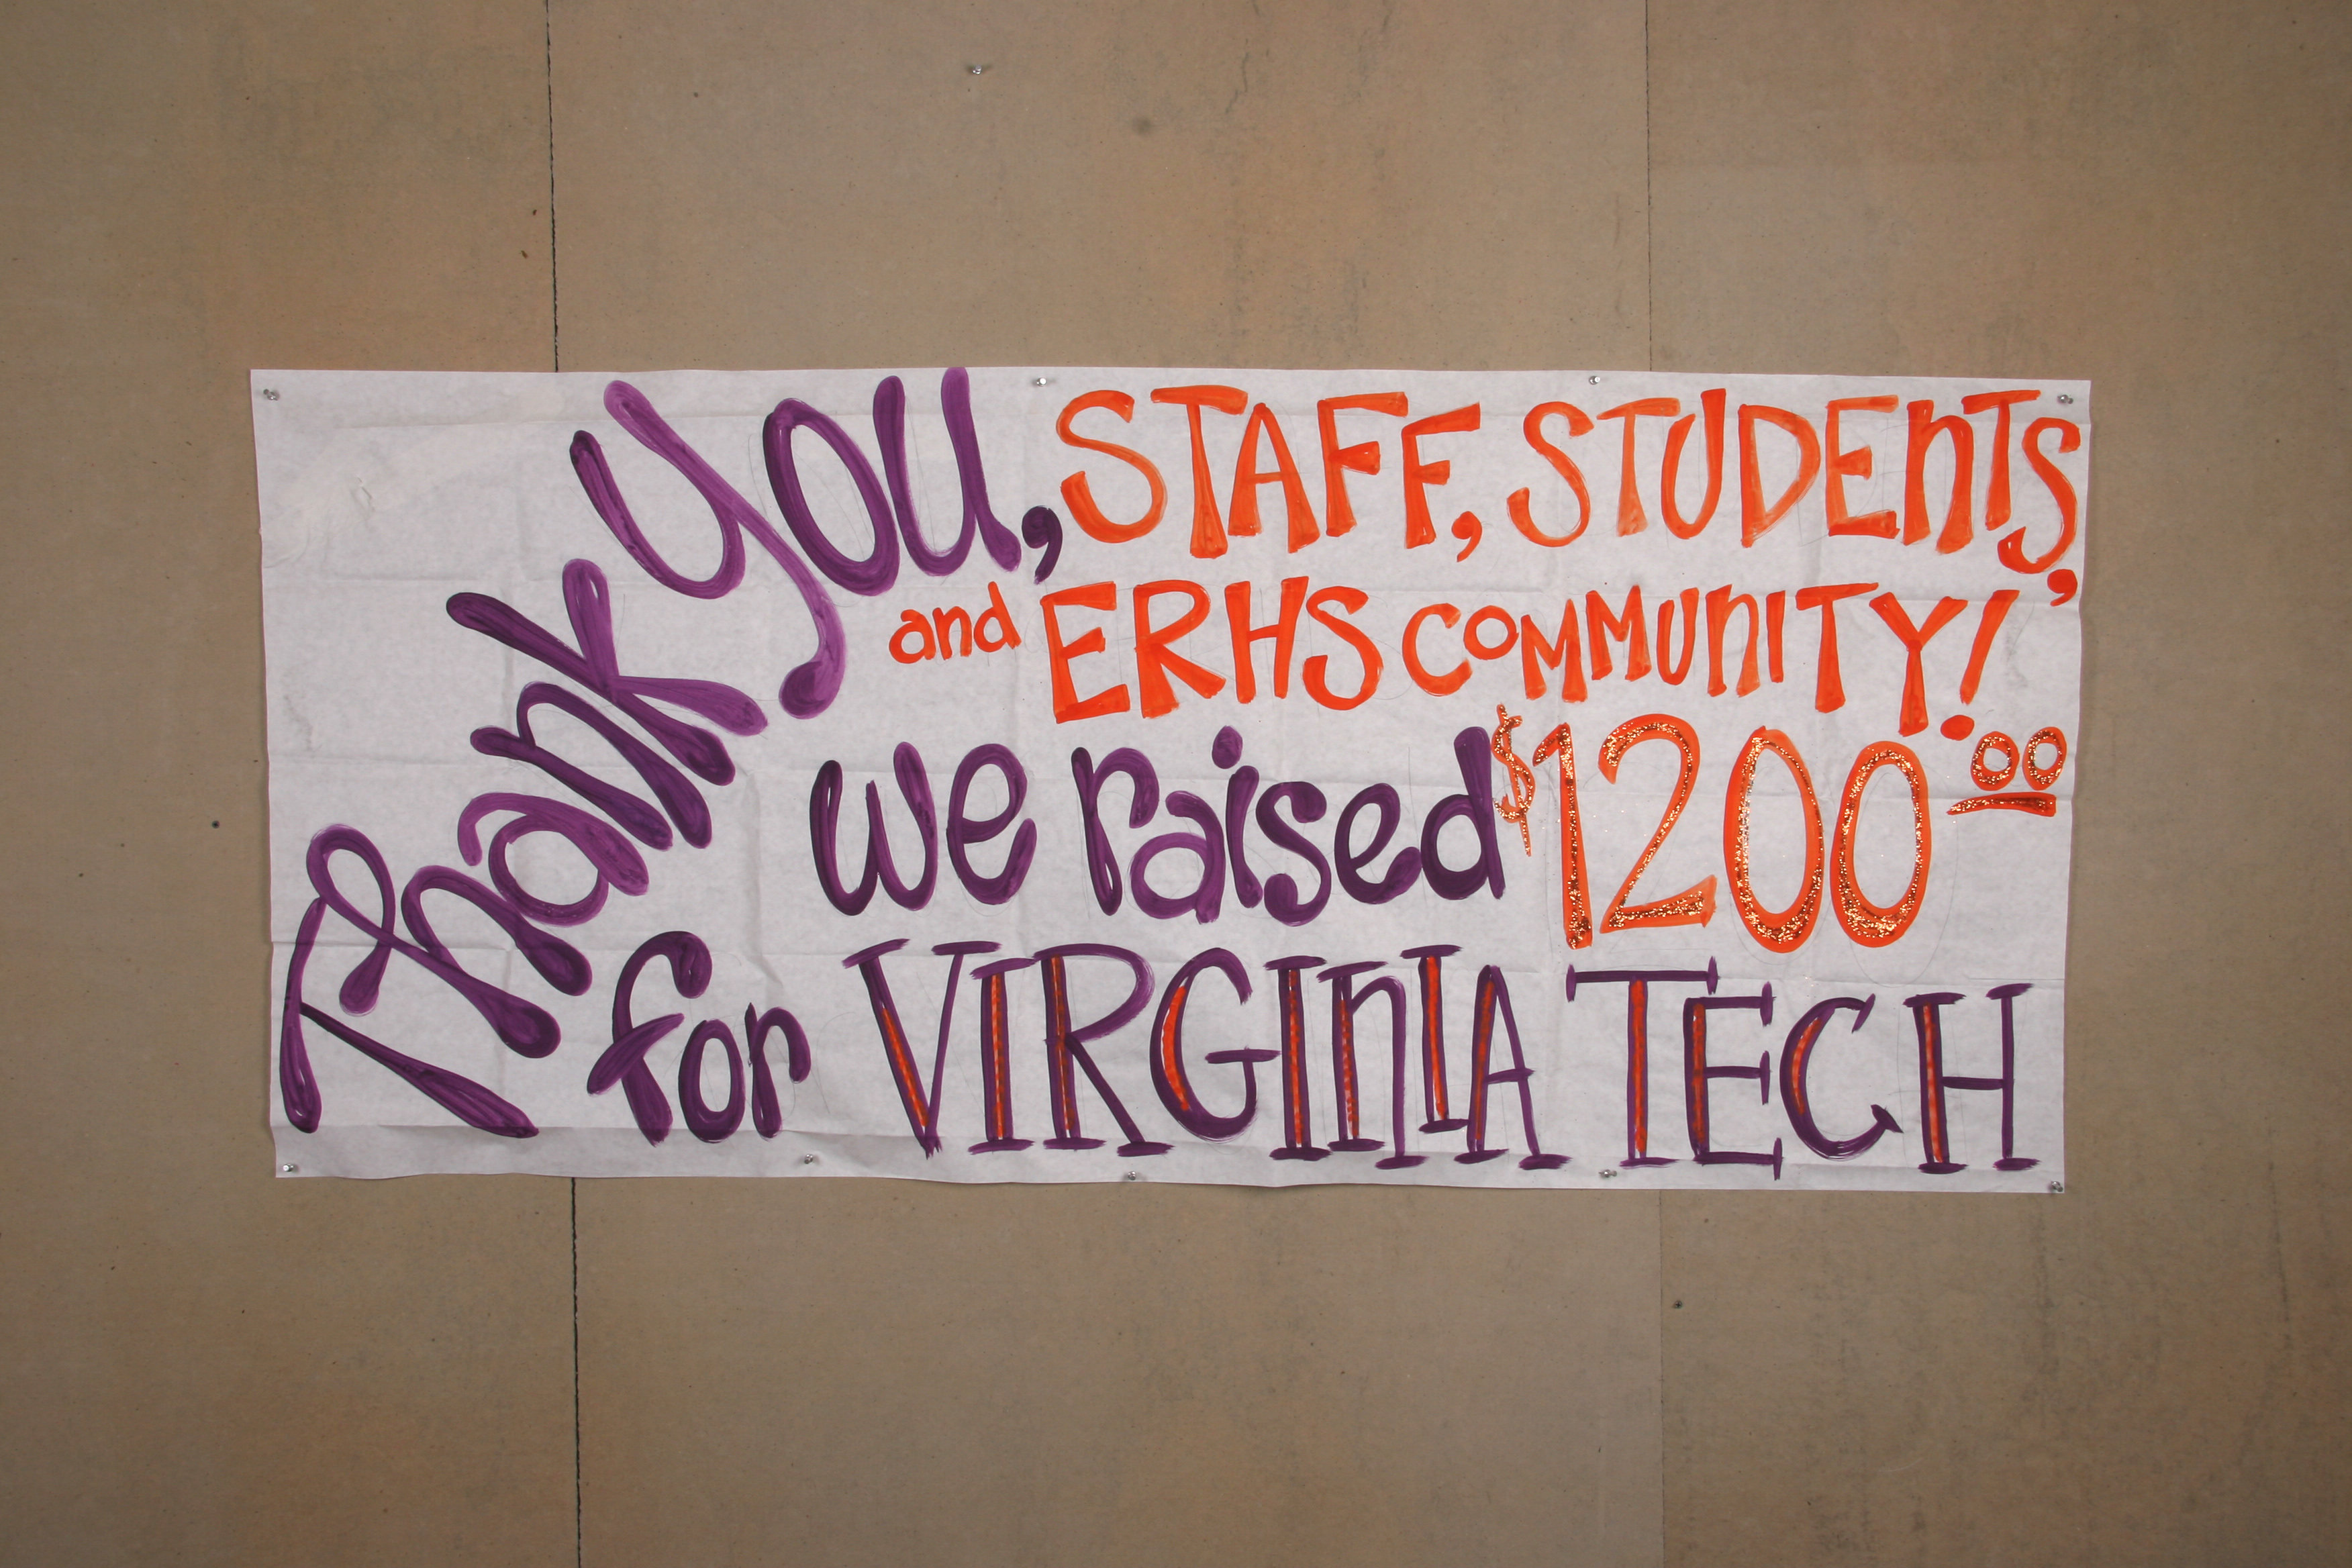 Thank You, STAFF, STUDEnTS,
and ERHS COMMUnITY!
we raised $1200.00
for VIRGInIA TECH